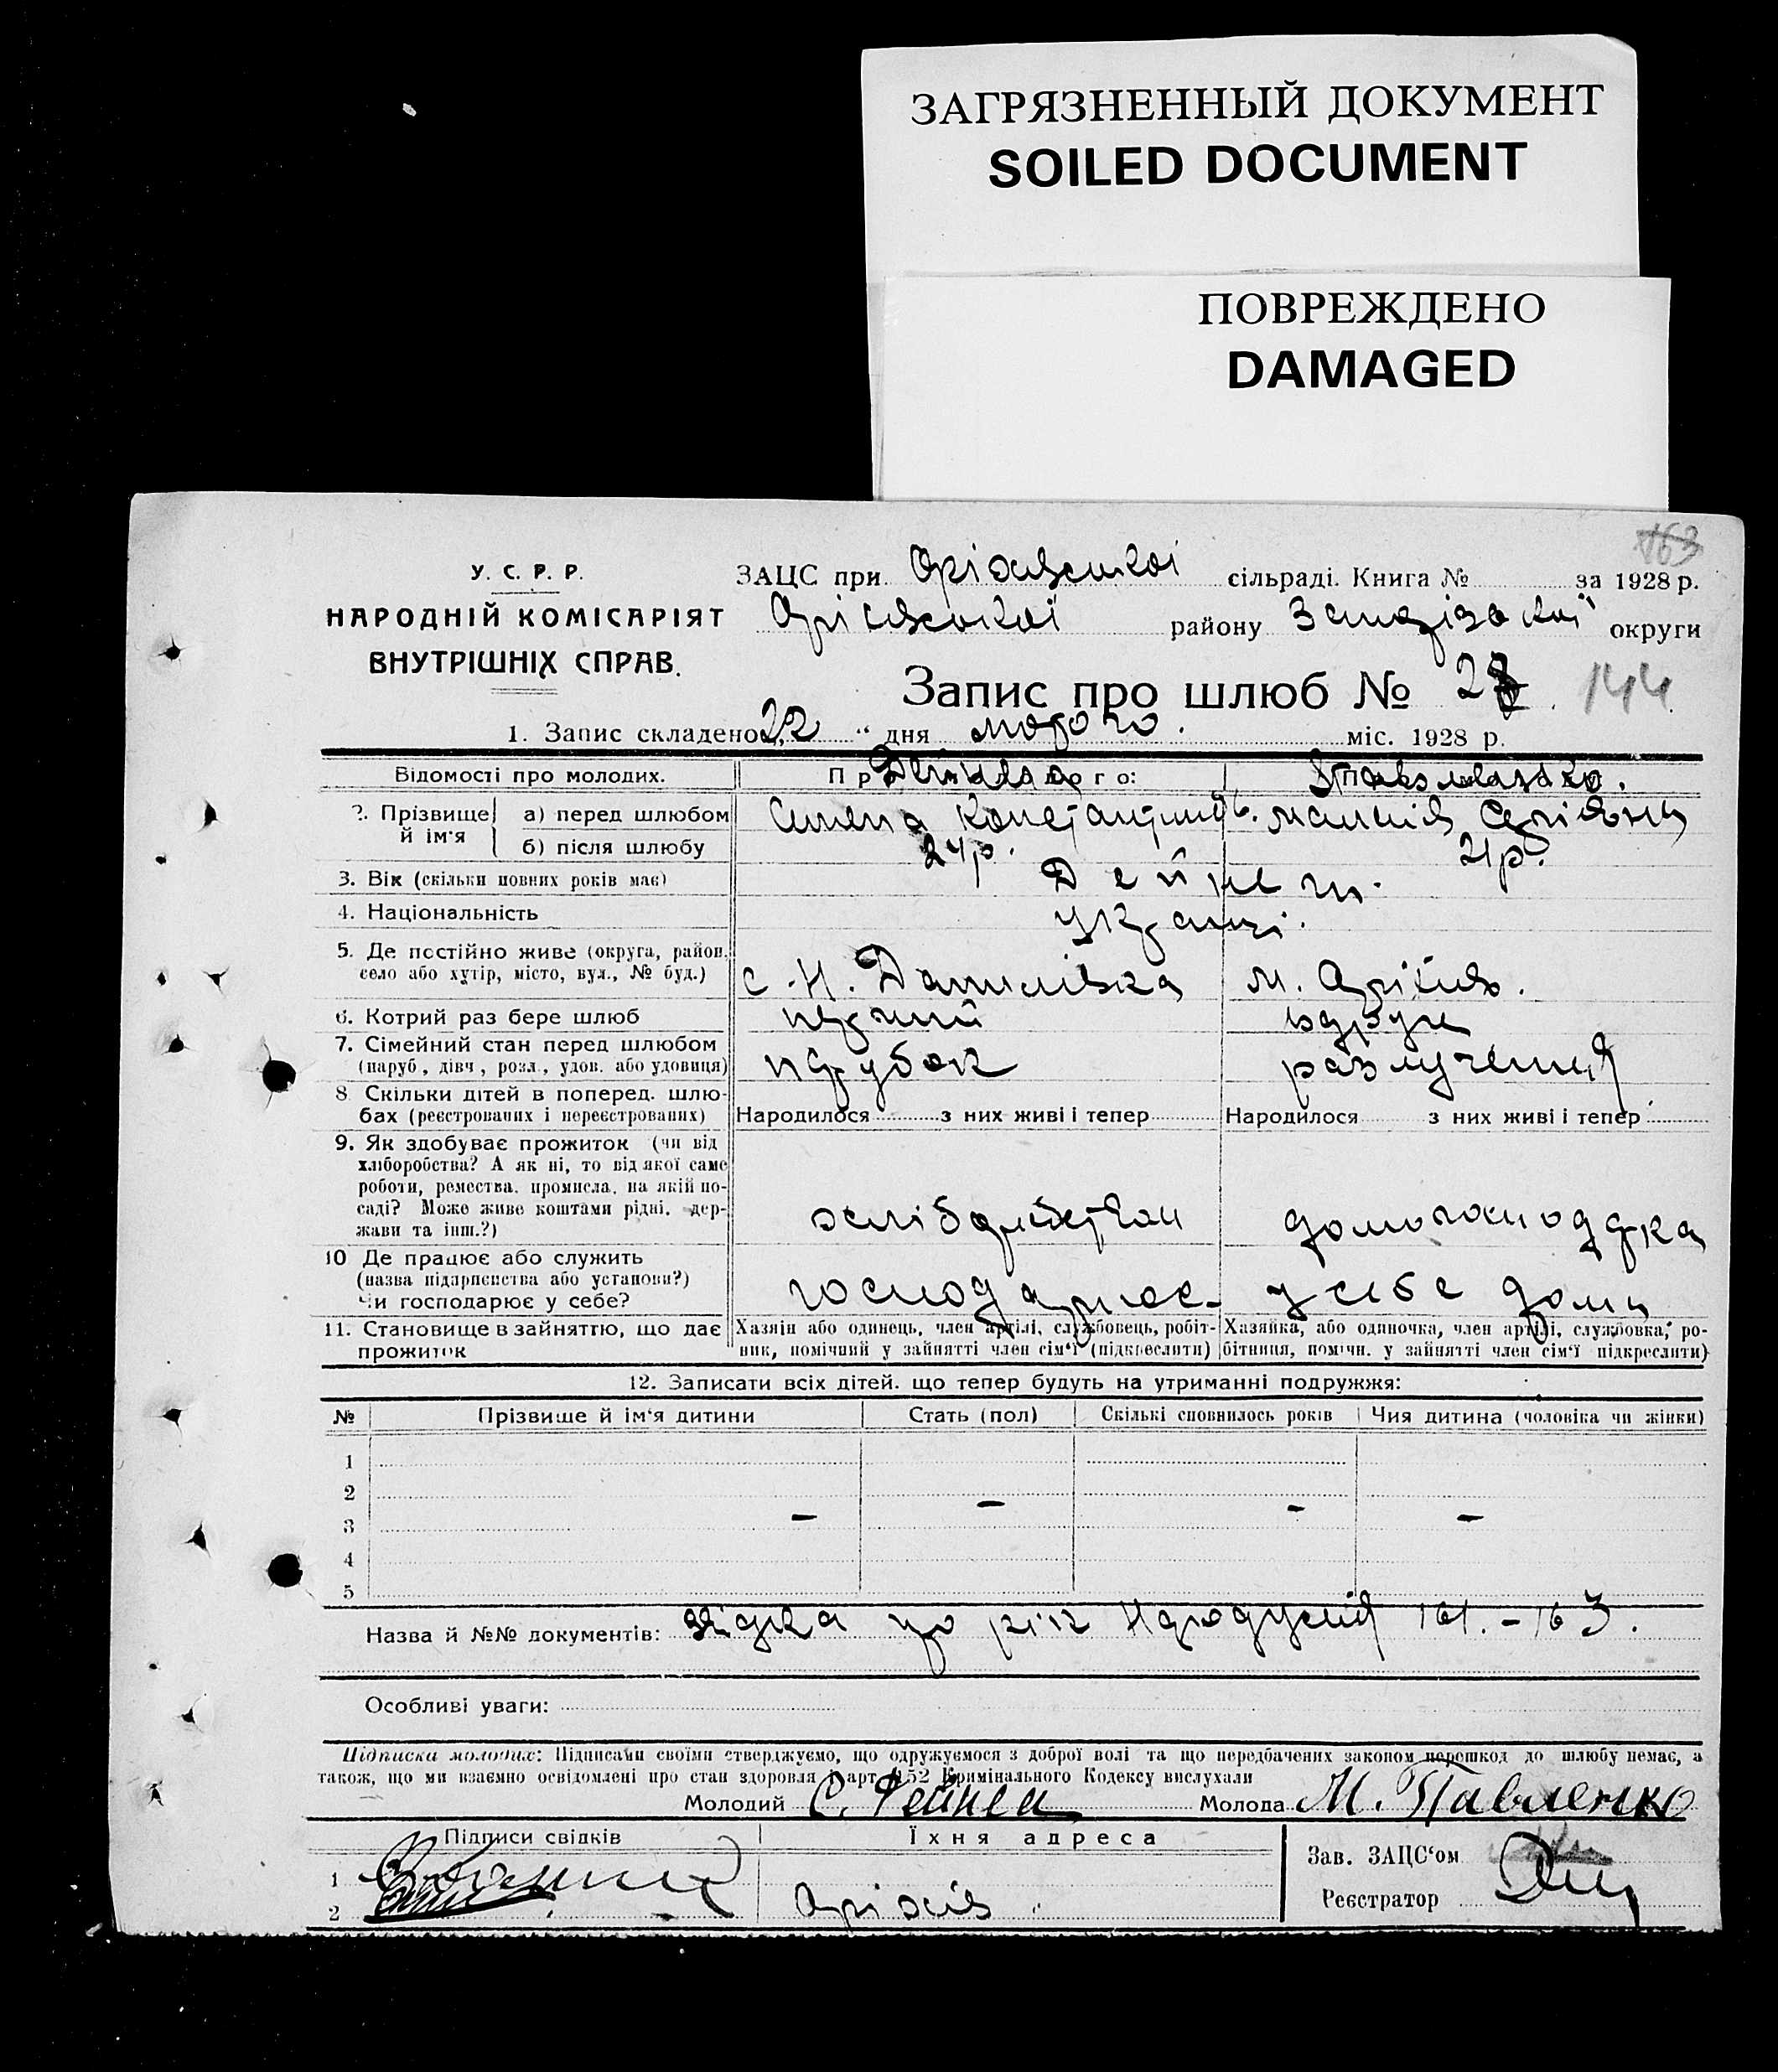 ЗАГРЯЗНЕННЫЙ ДОКУМЕНТ
SOILED DOCUMENT
ПОВРЕЖДЕНО
DAMAGED
163
У. С. Р. Р.
НАРОДНІЙ КОМІСАРІЯТ
ВНУТРІШНІХ СПРАВ.
ЗАЦС при Оріхівській сільраді. Книга № за 1928 р.
району округи
Запис про шлюб № 144
1. Запис складено „22“ дня лютого міс. 1928 р.
Відомості про молодих.
2. Прізвище й ім'я
а) перед шлюбом
б) після шлюбу
24р. 21р.
3. Вік (скільки повних років має)
4. Національність
5. Де постійно живе (округа, район, село або хутір, місто, вул., № буд.)
с. Н. Данилівка м. Оріхів.
6. Котрий раз бере шлюб
перший вдруге
7. Сімейний стан перед шлюбом (паруб, дівч, розл., удов. або удовиця)
парубок
8 Скільки дітей в поперед. шлюбах (реєстрованих і нереєстрованих)
Народилося з них живі і тепер Народилося з них живі і тепер
9. Як здобуває прожиток (чи від
хліборобства? А як ні, то від якої саме
роботи, ремества, промисла, на якій посаді? Може живе коштами рідні, держави та інш.?)
10 Де працює або служить
(назва підприємства або установи?)
Чи господарює у себе?
господарює у себе дома
11. Становище в зайняттю, що дає прожиток
Хазяїн або одинець, член артілі, службовець, робітник, помічний у зайнятті член сім'ї (підкреслити)
Хазяйка, або одиночка, член артілі, службовка, робітниця, помічн. у зайнятті член сім'ї підкреслити)
12. Записати всіх дітей. що тепер будуть на утриманні подружжя:
№ Прізвище й ім'я дитини Стать (пол) Скількі сповнилось років Чия дитина (чоловіка чи жінки)
1
2
3
4
5
Назва й №№ документів: 161.-163.
Особливі уваги:
Підписка молодих: Підписами своїми стверджуємо, що одружуємося з доброї волі та що передбачених законом перешкод до шлюбу немає, а
також, що ми взаємно освідомлені про стан здоров'я і арт. 152 Кримінального Кодексу вислухали
Молодий С. Дейнега Молода М. Павленко
Підписи свідків Їхня адреса
1
2 Оріхів
Зав. ЗАЦС'ом
Реєстратор